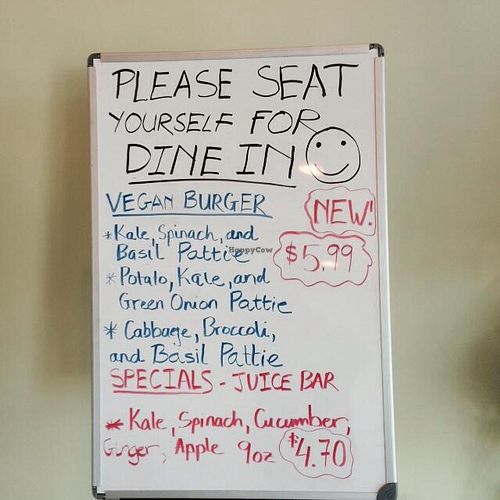 PLEASE SEAT
YOURSELF FOR
DINE IN
VEGAN BURGER
NEW!
*Kale, Spinach, and
Basil Pattie
$5.99
*Potato, Kale, and
Green Onion Pattie
* Cabbage, Broccoli,
and Basil Pattie
SPECIALS - JUICE BAR
* Kale, Spinach, Cucumber,
Ginger, Apple 9oz $4.70
HappyCow